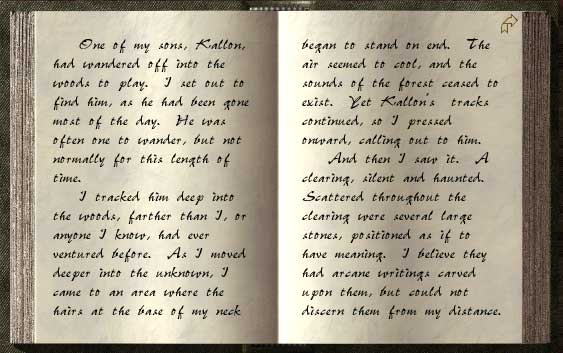 One of my sons, Kallon,
had wandered off into the
woods to play.  I set out to
find him, as he had been gone
most of the day.  He was
often one to wander, but not
normally for this length of
time.
I tracked him deep into
the woods, farther than I, or
anyone I know, had ever
ventured before.  As I moved
deeper into the unknown, I
came to an area where the
hairs at the base of my neck
began to stand on end.  The
air seemed to cool, and the
sounds of the forest ceased to
exist.  Yet Kallon's tracks
continued, so I pressed
onward, calling out to him.
And then I saw it.  A
clearing, silent and haunted.
Scattered throughout the
clearing were several large
stones, positioned as if to
have meaning.  I believe they
had arcane writings carved
upon them, but could not
discern them from my distance.